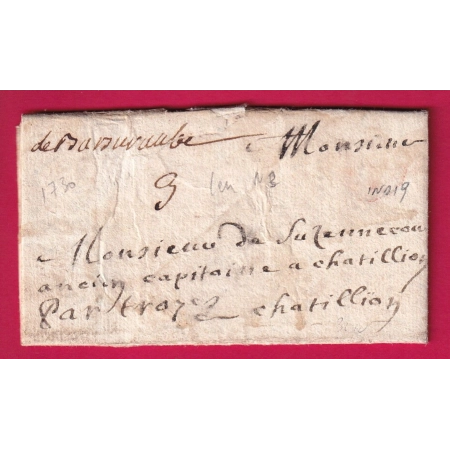 de Barsuraube a Monsieur
1730 3 Len N3 IND 19
a Monsieur de Suzennecour
ancien capitaine a chatillion
Par troyez chatillion